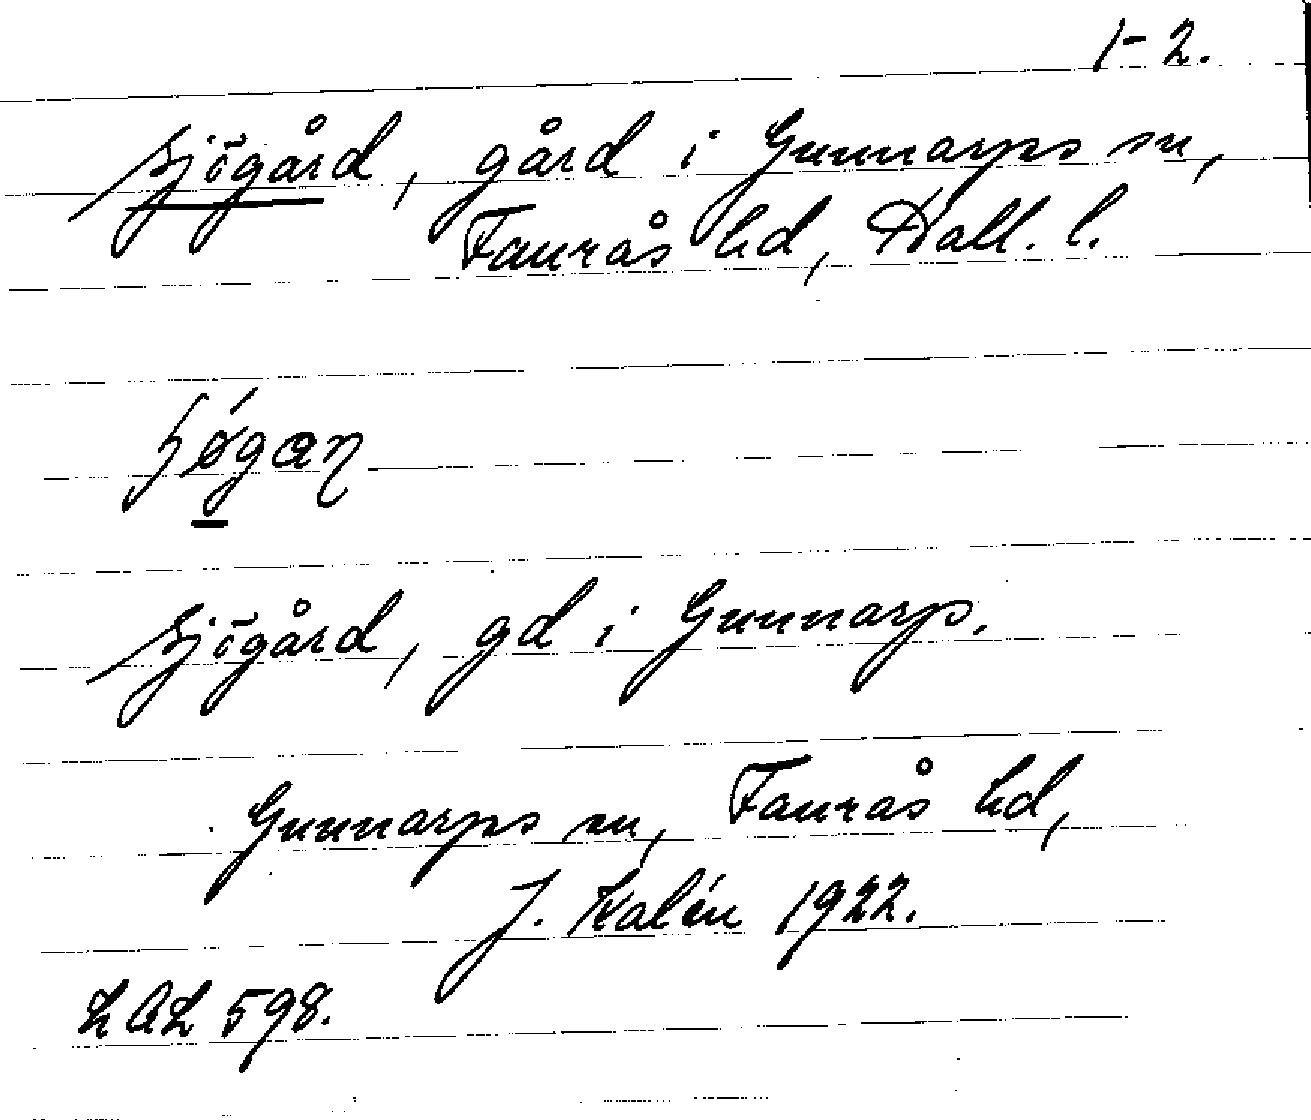 1-2.
Sjögård, gård i Gunnarps sn,
Faurås hd, Hall. l.
Sjögård, gd i Gunnarp.
Gunnarps sn, Faurås hd,
J. Kalén 1922.
LAL 598.